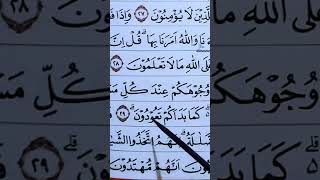 الَّذِيْنَ لَا يُؤْمِنُوْنَ ﴿٢٧﴾ وَإِذَا فَ
نَا وَاللّٰهُ اَمَرَنَا بِهَا ۗ قُلْ اِنَّ
عَلَى اللّٰهِ مَا لَا تَعْلَمُوْنَ ﴿٢٨﴾
وُجُوْهَكُمْ عِنْدَ كُلِّ مَسْ
كَمَا بَدَاَكُمْ تَعُوْدُوْنَ ﴿٢٩﴾
اتَّخَذُوا الشَّ
وْنَ اَنَّهُمْ مُّهْتَدُوْنَ